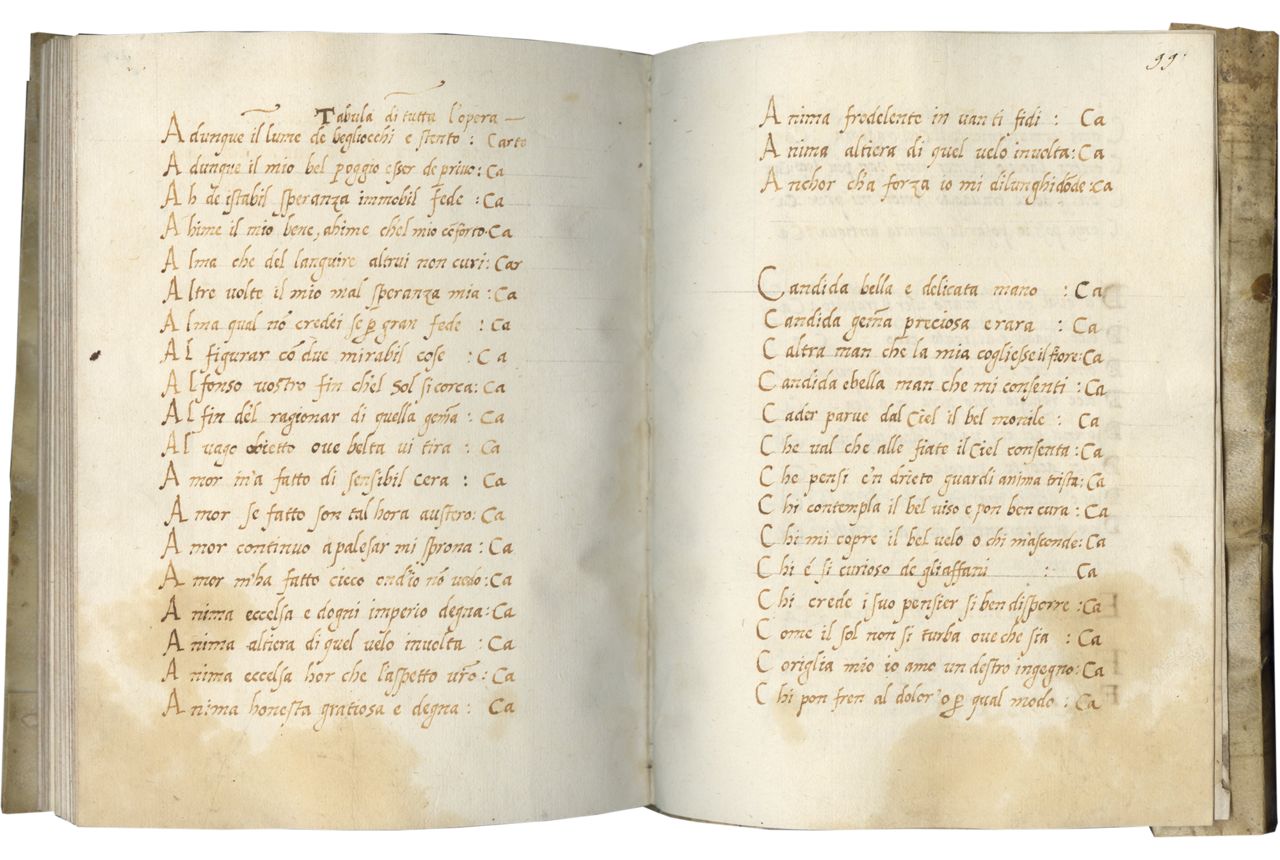 Tabula di tutta l'opera
Adunque il lume de begliocchi e stento : Carto
Adunque il mio bel poggio esser de privo : Ca
Ah de istabil speranza immobil fede : Ca
Ahime il mio bene, ahime chel mio cõforto. Ca
Alma che del languire altrui non curi : Car
Altre volte il mio mal speranza mia : Ca
Alma qual nõ credei se ꝑ gran fede : Ca
Al figurar cõ due mirabil cose : Ca
Alfonso vostro fin chel Sol si corca : Ca
Al fin del ragionar di quella gem̃a : Ca
Al vago obietto ove belta vi tira : Ca
Amor m'a fatto di sensibil cera : Ca
Amor se fatto son tal hora austero : Ca
Amor continuo a palesar mi sprona : Ca
Amor m'ha fatto cieco ond'io nõ vedo : Ca
Anima eccelsa e dogni imperio degna : Ca
Anima altiera di quel velo involta : Ca
Anima eccelsa hor che l'aspetto vr̃o : Ca
Anima honesta gratiosa e degna : Ca
99
Anima fredelente in van ti fidi : Ca
Anima altiera di quel velo involta : Ca
Anchor ch'a forza io mi dilunghi dõde : Ca
Candida bella e delicata mano : Ca
Candida gem̃a preciosa e rara : Ca
Caltra man che la mia cogliesse il fiore : Ca
Candida e bella man che mi consenti : Ca
Cader parve dal Ciel il bel monile : Ca
Che val che alle fiate il Ciel consenta : Ca
Che pensi e'n drieto guardi anima trista : Ca
Chi contempla il bel viso e pon ben cura : Ca
Chi mi copre il bel velo o chi m'asconde : Ca
Chi é si curioso de gli affani : Ca
Chi crede i suo pensier si ben disporre : Ca
Come il sol non si turba ove che sia : Ca
Coriglia mio io amo un destro ingegno : Ca
Chi pon fren al dolor o ꝑ qual modo : Ca